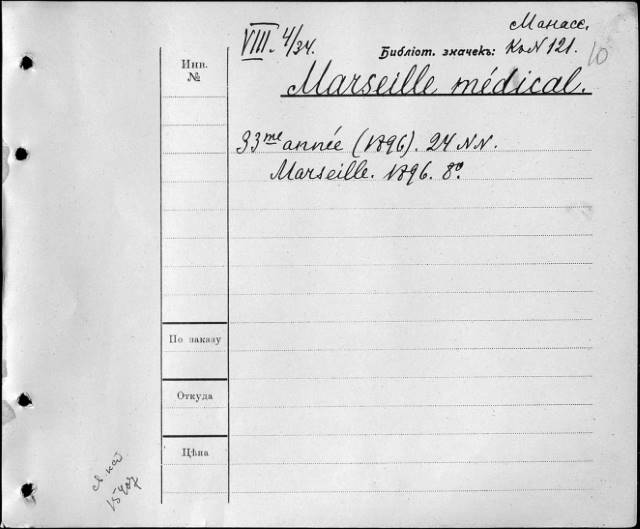 Манасс.
VIII. 4/34. Библіот. значекъ: К. N 121. 10
Инв. №
Marseille médical.
33me année (1896). 24 NN.
Marseille. 1896. 8º.
По заказу
Откуда
Цѣна
15407